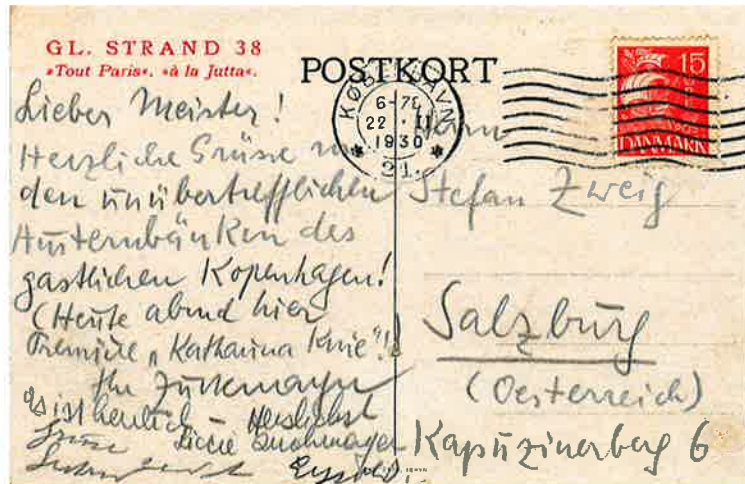 GL. STRAND 38
»Tout Paris«. »à la Jutta«.
POSTKORT
KØBENHAVN
6-7E
22 . II
1930
21.
15
DANMARK
Lieber Meister!
Herzliche Grüsse von
den unübertrefflichen
Austernbänken des
gastlichen Kopenhagen!
(Heute abend hier
Premiere „Katharina Knie"!)
Ihr Zuckmayer
es ist herrlich – Herzlichst
Grüsse
Herrn
Stefan Zweig
Salzburg
(Oesterreich)
Kapuzinerberg 6